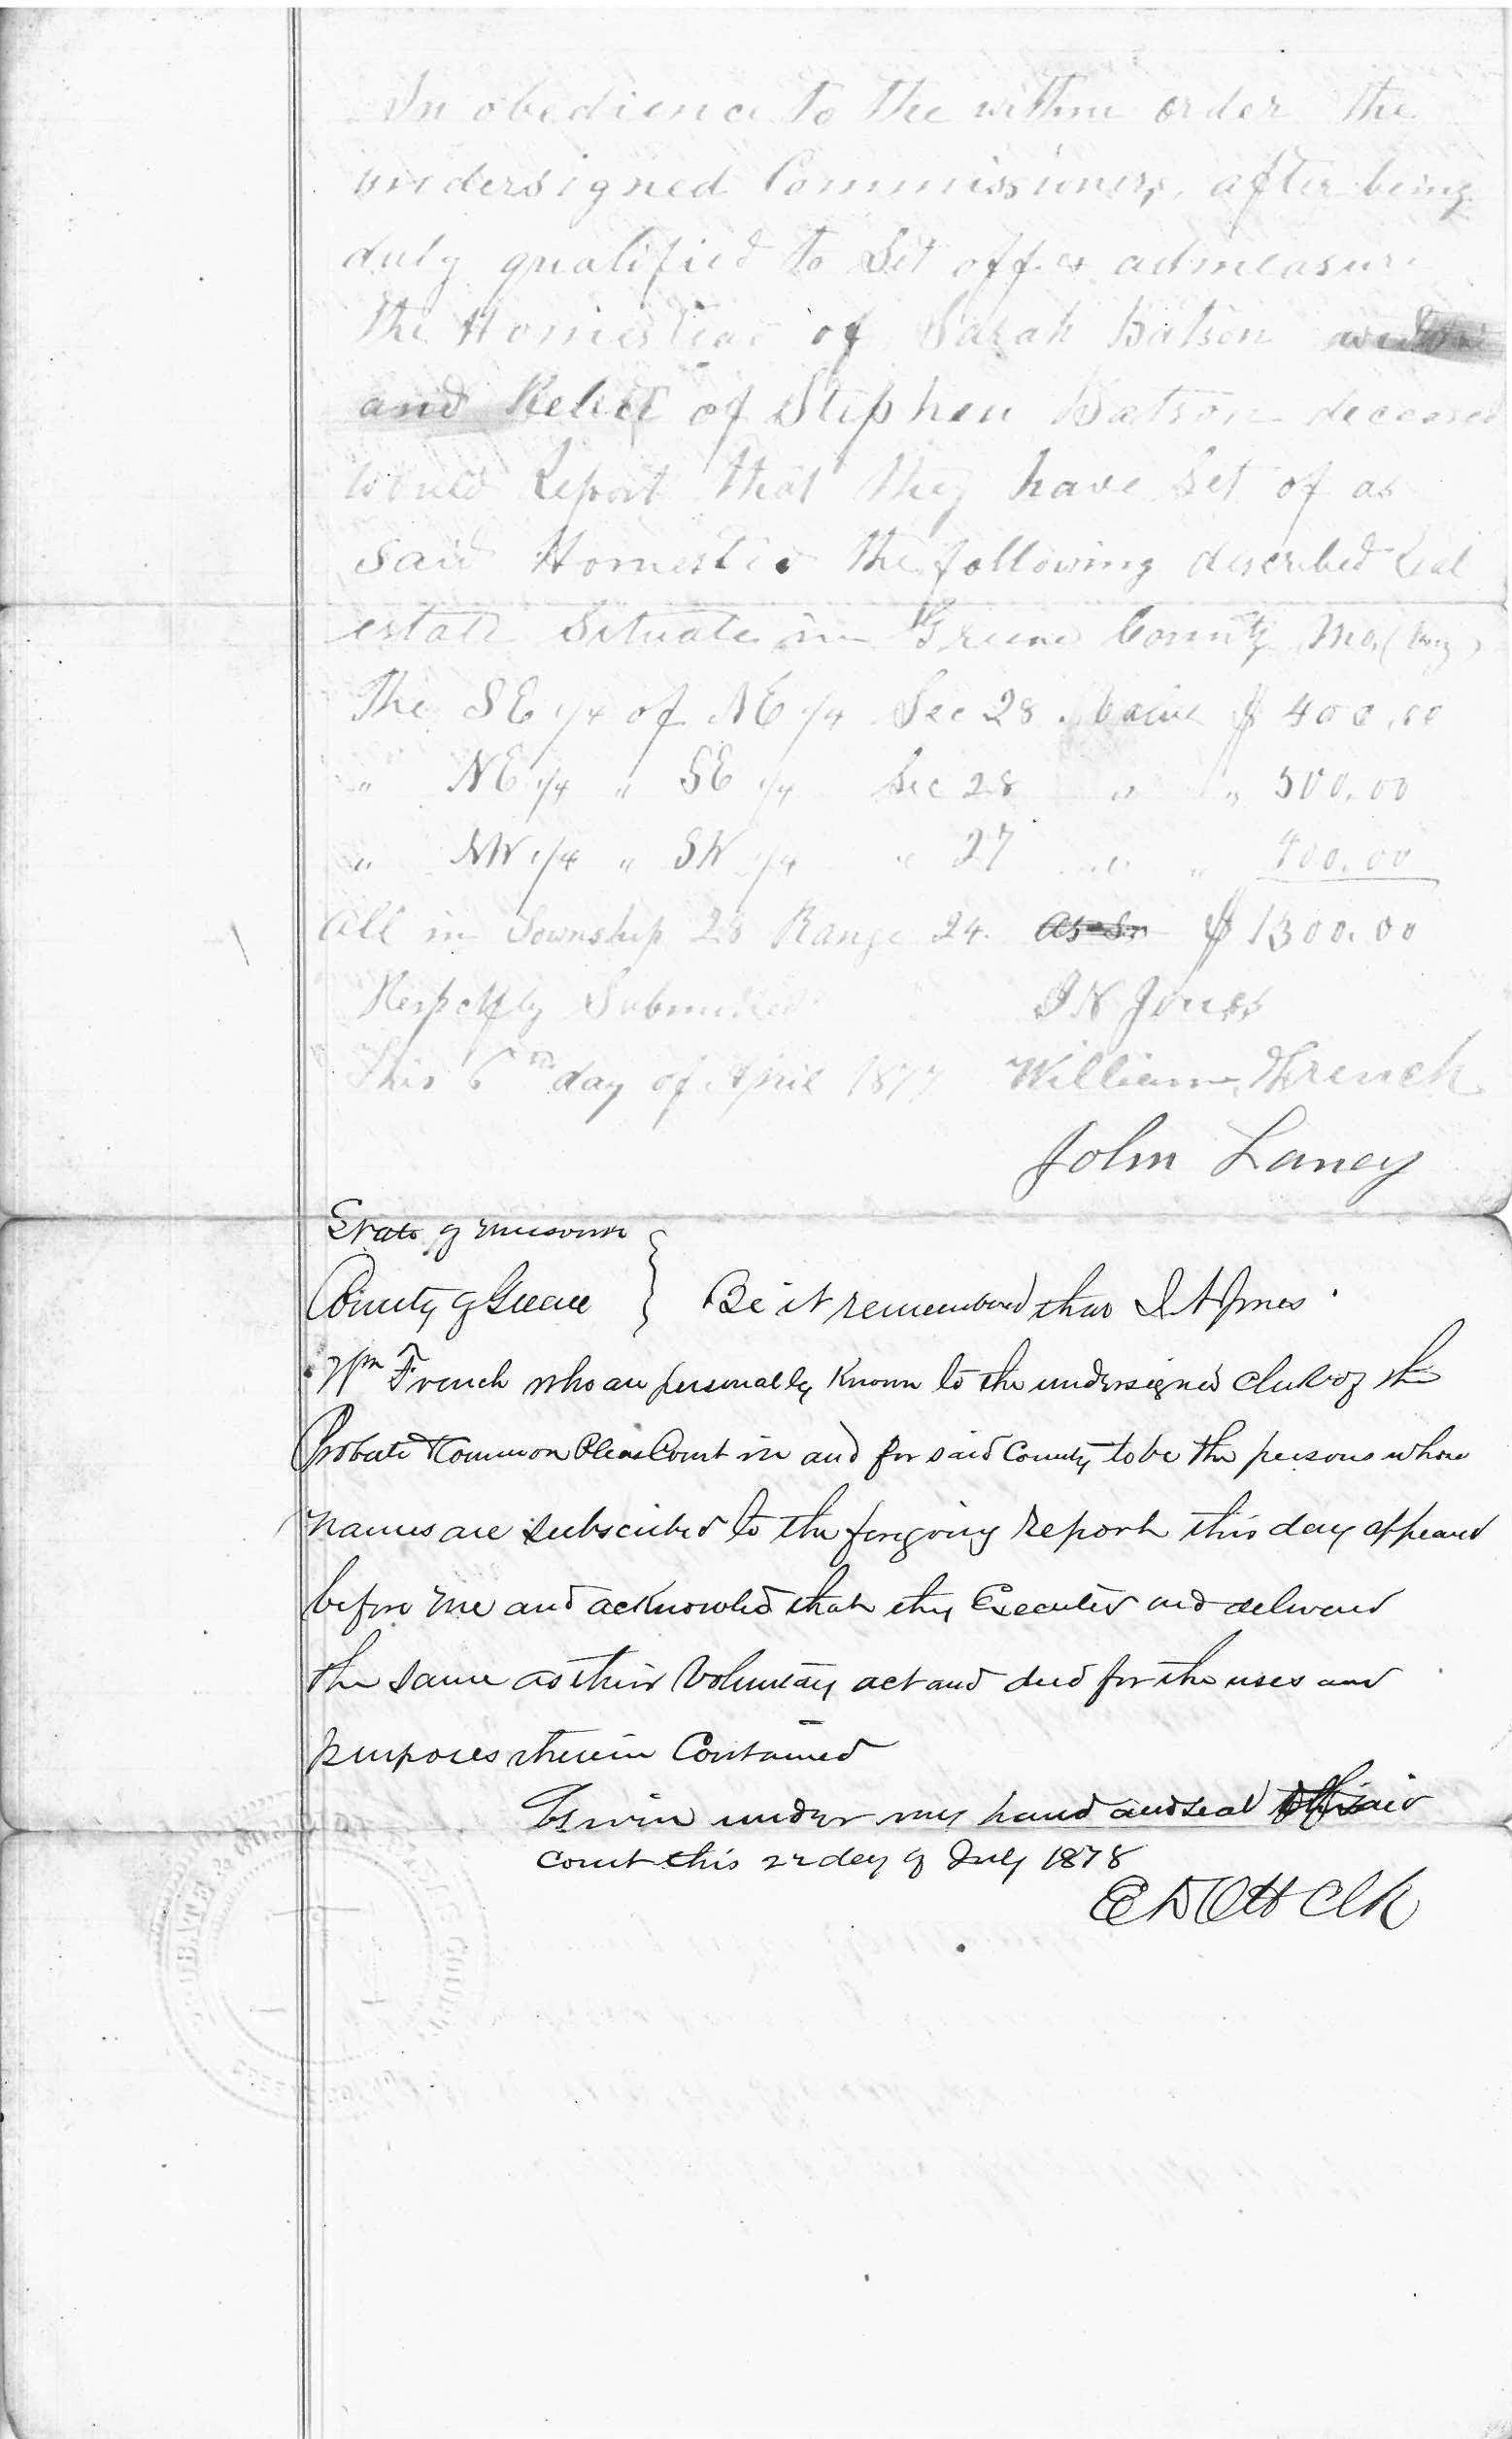 In obedience to the within order the
undersigned Commissioners, after being
duly qualified to Set off & admeasure
the Homestead of Sarah Batson widow
and Relict of Stephen Batson deceased
would Report that they have Set of as
Said Homested the following described Real
estate Situate in Greene County Mo,
The SE 1/4 of NE 1/4 Sec 28. value $ 400.00
" NE 1/4 " SE 1/4 Sec 28 " " 500.00
" NW 1/4 " SW 1/4 " 27 " " 400.00
All in Township 28 Range 24. $ 1300.00
Respctfly Submitted J N Jones
This 6th day of April 1877 William French
John Laney
State of Missouri
County of Greene } Be it remembered that J N Jones
Wm French who are personally Known to the undersigned Clerk of the
Probate & Common Pleas Court in and for said County to be the persons whose
names are subscribed to the foregoing Report this day appeared
before me and acknowled that they Executed and delivered
the same as their Voluntary act and deed for the uses and
purposes therein Contained
Given under my hand and seal of said
Court this 22 day of July 1878
E D Ott Clk